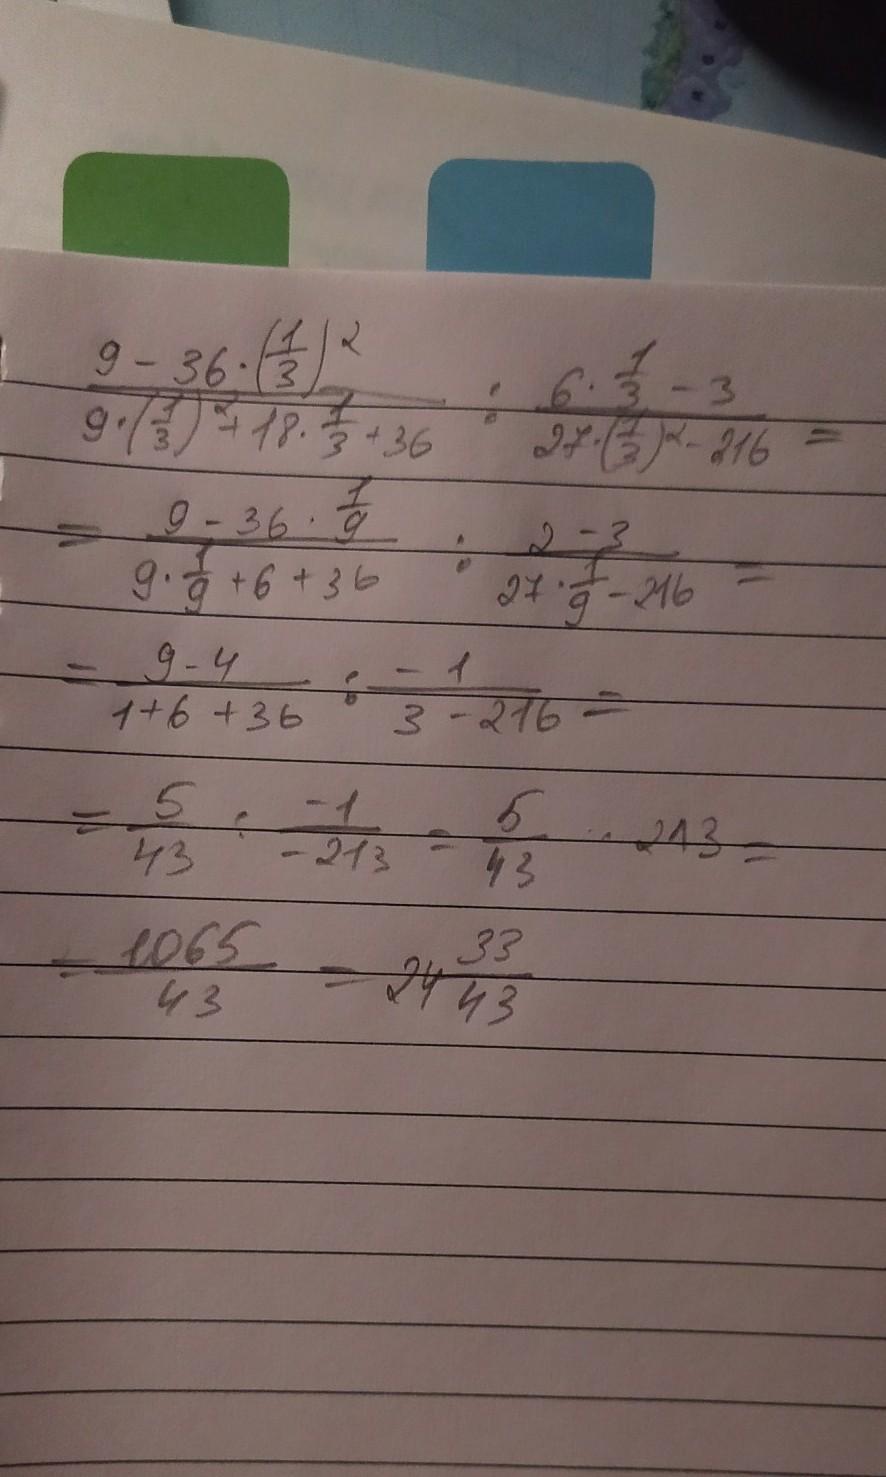 (9 - 36 · (1/3)²) / (9 · (1/3)² + 18 · 1/3 + 36) : (6 · 1/3 - 3) / (27 · (1/3)² - 216) =
= (9 - 36 · 1/9) / (9 · 1/9 + 6 + 36) : (2 - 3) / (27 · 1/9 - 216) =
= (9 - 4) / (1 + 6 + 36) : (-1) / (3 - 216) =
= 5/43 : (-1)/(-213) = 5/43 · 213 =
= 1065/43 = 24 33/43